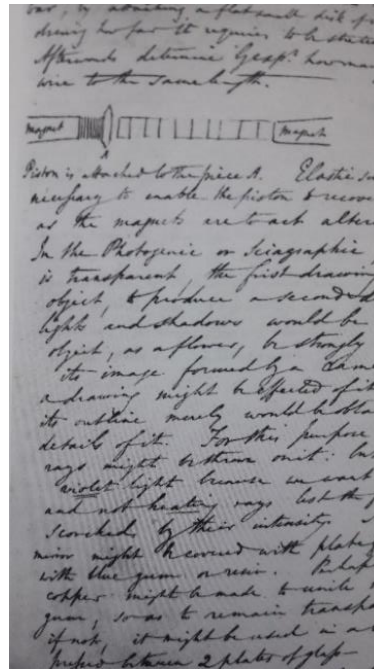 out, by a small disk of
during how far it requires to be
Afterwards determine by exp.t how
wire to the same length.
magnet A magnet
Piston is attached to the piece A. Elastic
necessary to enable the piston to recover
as the magnets are to act alter
In the Photogenic or Sciagraphic
is transparent, the first drawing
object, to produce a second d
lights and shadows would be
object, as a flower, be strongly
its image formed by a came
a drawing might be effected of it
its outline merely would be obta
details of it. For this purpose
rays might be thrown on it: but
violet light because we want
and not heating rays lest the f
scorched by their intensity.
mirror might be covered with plate
with blue gum or resin. Perhap
copper might be made to unite
gum, so as to remain transpa
if not, it might be used in a
pressed between 2 plates of glass